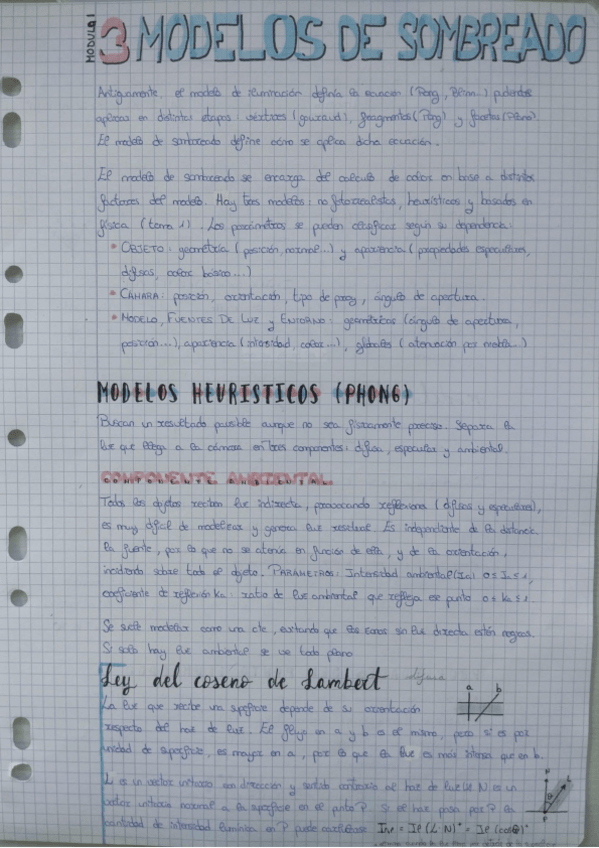 MODULO 1
3 MODELOS DE SOMBREADO
Antiguamente, el modelo de iluminación definía la ecuación (Phong, Blinn...) pudiendo
aplicarse en distintas etapas: vértices (gouraud), fragmentos (Phong) y facetas (Plano)
El modelo de sombreado define cómo se aplica dicha ecuación.
El modelo de sombreado se encarga del cálculo de color en base a distintos
factores del modelo. Hay tres modelos: no fotorrealistas, heurísticos y basados en
física (tema 1). Los parámetros se pueden clasificar según su dependencia:
• OBJETO: geometría (posición, normal...) y apariencia (propiedades especulares,
difusas, color básico...)
• CÁMARA: posición, orientación, tipo de proy, ángulo de apertura.
• MODELO, FUENTES DE LUZ Y ENTORNO: geométricos (ángulo de apertura,
posición...), apariencia (intensidad, color...), globales (atenuación por niebla...)
MODELOS HEURISTICOS (PHONG)
Buscan un resultado plausible aunque no sea físicamente preciso. Separa la
luz que llega a la cámara en tres componentes: difusa, especular y ambiental.
COMPONENTE AMBIENTAL
Todos los objetos reciben luz indirecta, provocando reflexiones (difusas y especulares),
es muy difícil de modelizar y genera luz residual. Es independiente de la distancia
la fuente, por lo que no se atenúa en función de ella, y de la orientación,
incidiendo sobre todo el objeto. PARÁMETROS: Intensidad ambiental (Ia) 0 ≤ Ia ≤ 1,
coeficiente de reflexión Ka: ratio de luz ambiental que refleja ese punto 0 ≤ Ka ≤ 1
Se suele modelar como una cte, evitando que las zonas sin luz directa estén negras.
Si solo hay luz ambiental se ve todo plano
Ley del coseno de Lambert difusa
a b
La luz que recibe una superficie depende de su orientación
respecto del haz de luz. El flujo en a y b es el mismo, pero si es por
unidad de superficie, es mayor en a, por lo que la luz es más intensa que en b.
L es un vector unitario con dirección y sentido contrario al haz de luz N es un
vector unitario normal a la superficie en el punto P. Si el haz pasa por P la
cantidad de intensidad lumínica en P puede
N L
P